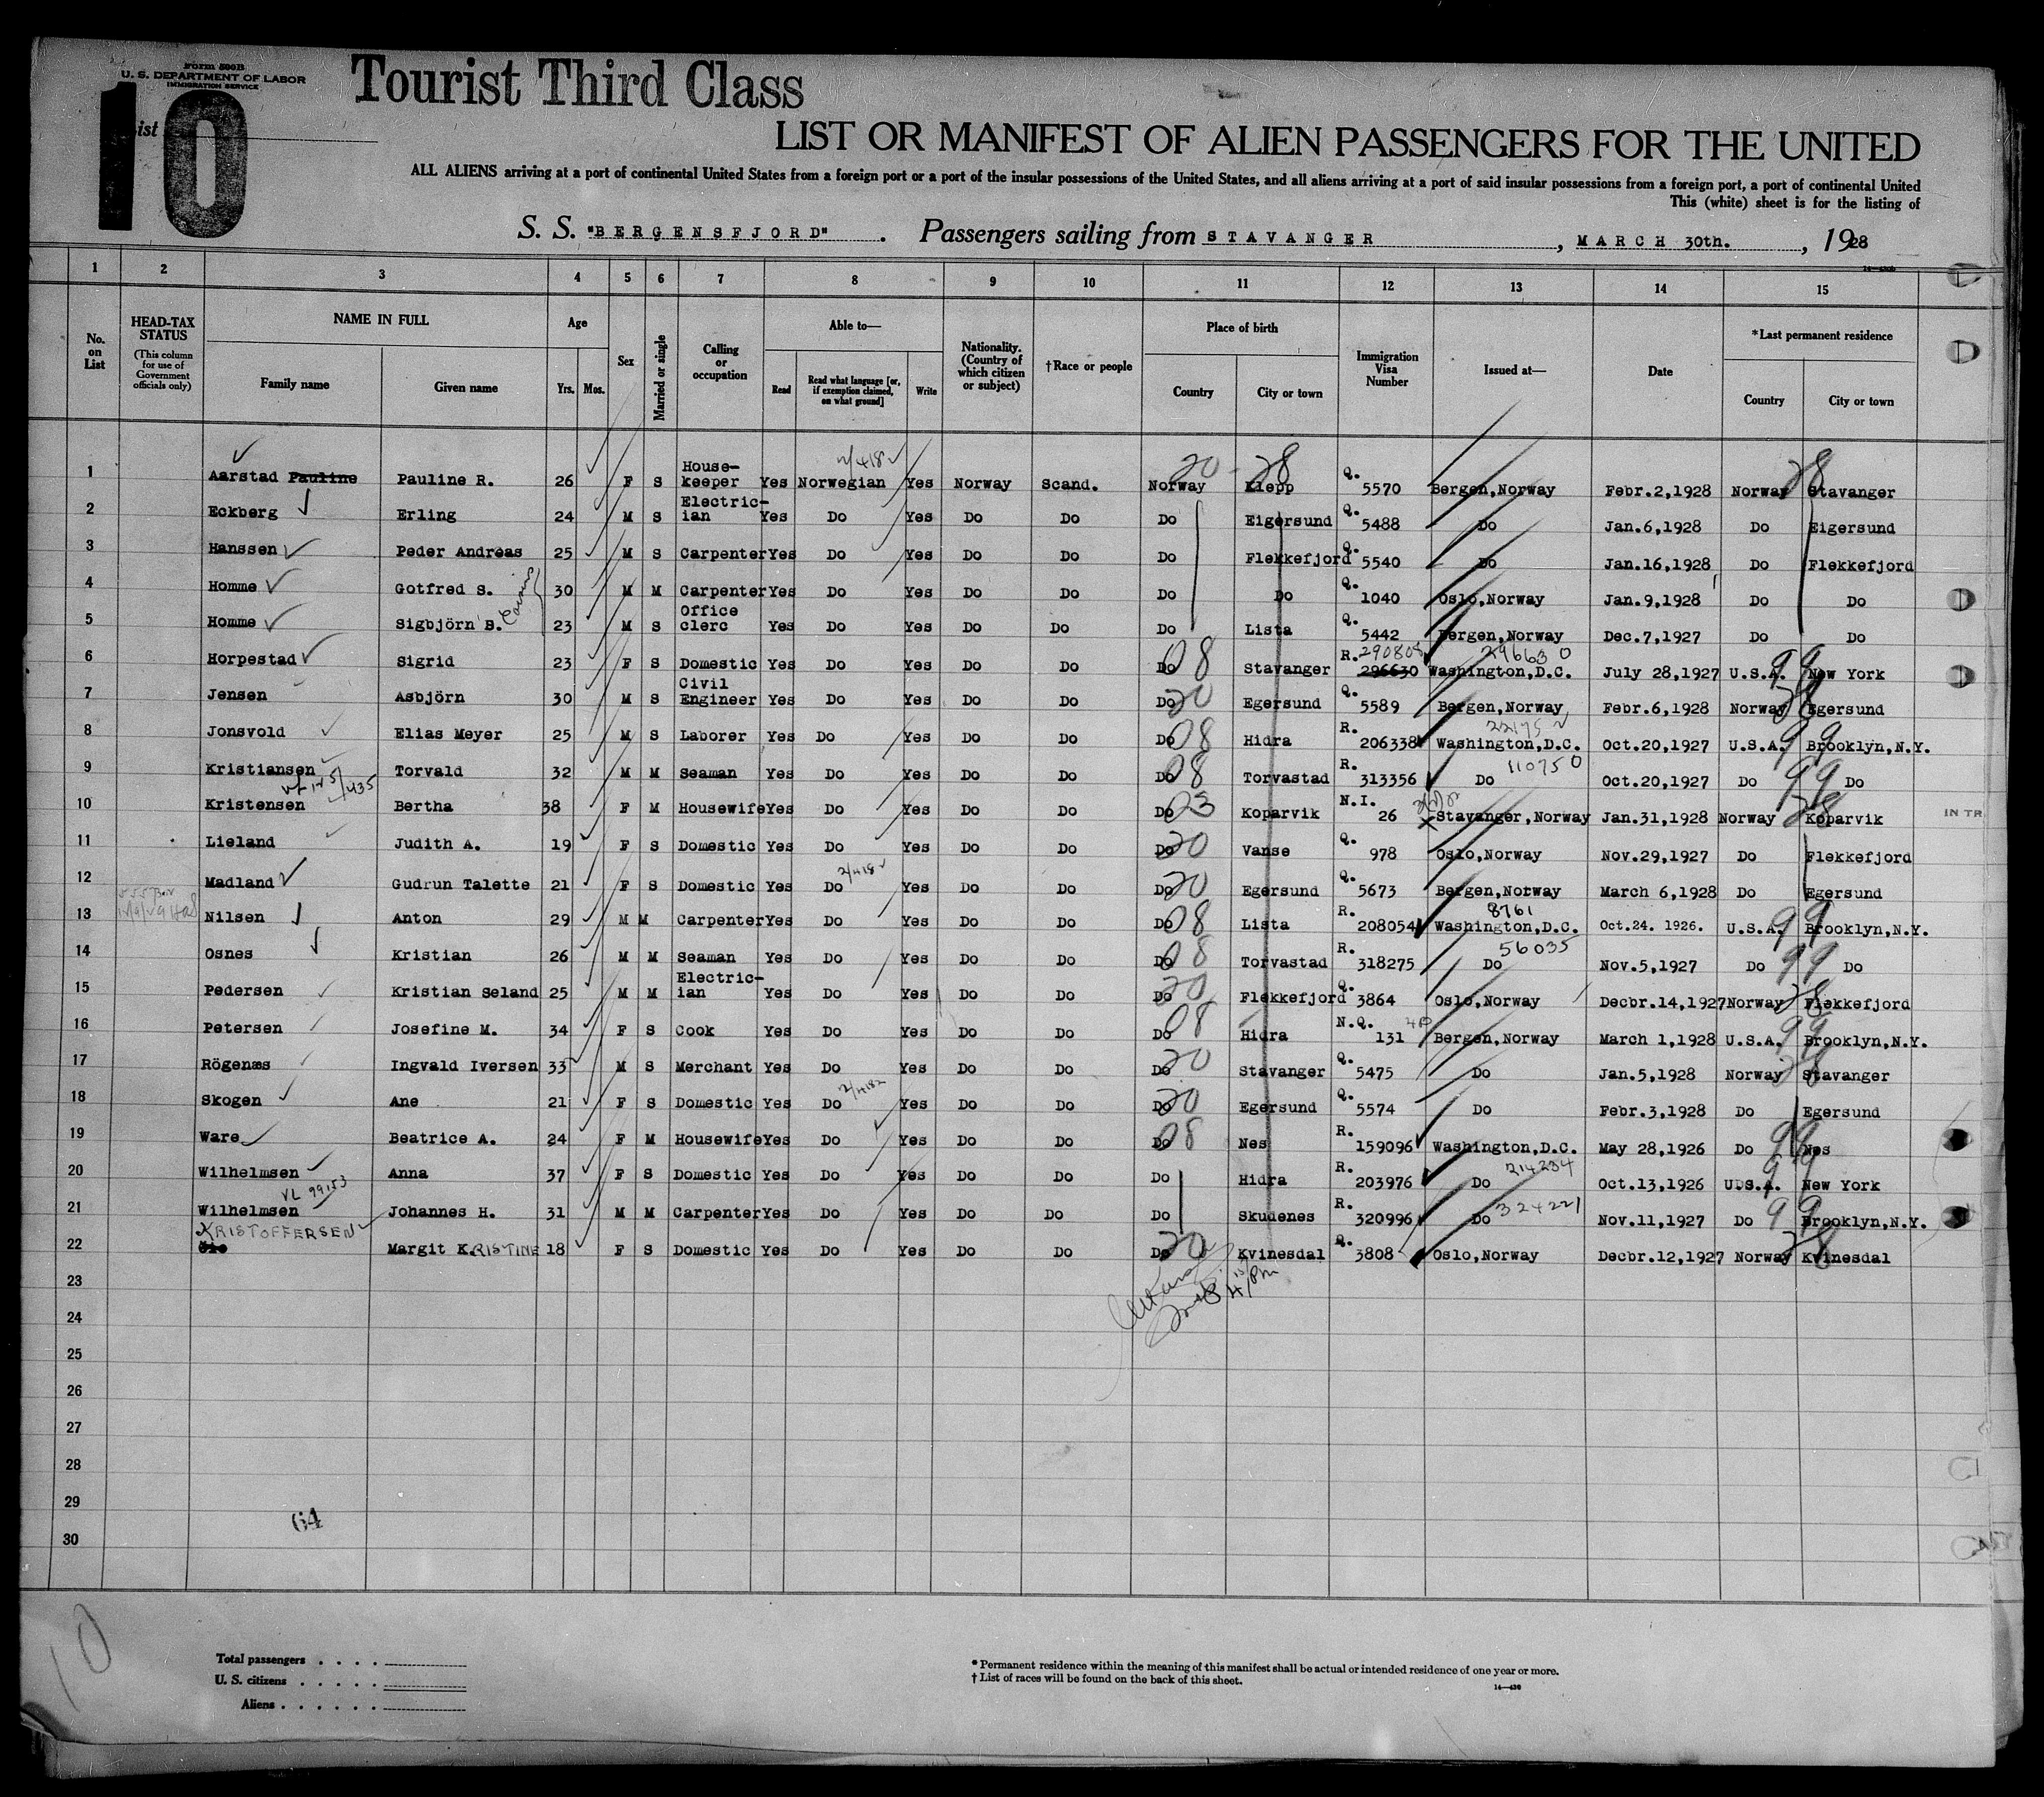 Form 500B
U. S. DEPARTMENT OF LABOR
IMMIGRATION SERVICE
10
Tourist Third Class
LIST OR MANIFEST OF ALIEN PASSENGERS FOR THE UNITED
ALL ALIENS arriving at a port of continental United States from a foreign port or a port of the insular possessions of the United States, and all aliens arriving at a port of said insular possessions from a foreign port, a port of continental United
This (white) sheet is for the listing of
S. S. "BERGENSFJORD" . Passengers sailing from STAVANGER , MARCH 30th. , 1928
1 2 3 4 5 6 7 8 9 10 11 12 13 14 15
No. on List
HEAD-TAX STATUS (This column for use of Government officials only)
NAME IN FULL Family name Given name
Age Yrs. Mos.
Sex
Married or single
Calling or occupation
Able to— Read Read what language [or, if exemption claimed, on what ground] Write
Nationality. (Country of which citizen or subject)
†Race or people
Place of birth Country City or town
Immigration Visa Number
Issued at—
Date
*Last permanent residence Country City or town
1 Aarstad Pauline Pauline R. 26 F S House-keeper Yes Norwegian Yes Norway Scand. Norway 20 28 Klepp Q. 5570 Bergen,Norway Febr.2,1928 Norway 28 Stavanger
2 Eckberg Erling 24 M S Electric-ian Yes Do Yes Do Do Do Eigersund Q. 5488 Do Jan.6,1928 Do Eigersund
3 Hanssen Peder Andreas 25 M S Carpenter Yes Do Yes Do Do Do Flekkefjord Q. 5540 Do Jan.16,1928 Do Flekkefjord
4 Homme Gotfred S. 30 M M Carpenter Yes Do Yes Do Do Do Do Q. 1040 Oslo,Norway Jan.9,1928 Do Do
5 Homme Sigbjörn B. 23 M S Office clerc Yes Do Yes Do Do Do Lista Q. 5442 Bergen,Norway Dec.7,1927 Do Do
6 Horpestad Sigrid 23 F S Domestic Yes Do Yes Do Do Do 08 Stavanger R. 290808 296630 Washington,D.C. 296630 July 28,1927 U.S.A. 99 New York
7 Jensen Asbjörn 30 M S Civil Engineer Yes Do Yes Do Do Do 20 Egersund Q. 5589 Bergen,Norway Febr.6,1928 Norway 28 Egersund
8 Jonsvold Elias Meyer 25 M S Laborer Yes Do Yes Do Do Do 08 Hidra R. 206338 Washington,D.C. 22175 Oct.20,1927 U.S.A. 99 Brooklyn,N.Y.
9 Kristiansen Torvald 32 M M Seaman Yes Do Yes Do Do Do 08 Torvastad R. 313356 Do 110750 Oct.20,1927 Do 99 Do
10 Kristensen Bertha 38 F M Housewife Yes Do Yes Do Do Do 03 Koparvik N.I. 26 Stavanger,Norway Jan.31,1928 Norway 28 Koparvik IN TR
11 Lieland Judith A. 19 F S Domestic Yes Do Yes Do Do Do 20 Vanse Q. 978 Oslo,Norway Nov.29,1927 Do Flekkefjord
12 Madland Gudrun Talette 21 F S Domestic Yes Do Yes Do Do Do 20 Egersund Q. 5673 Bergen,Norway March 6,1928 Do Egersund
13 Nilsen Anton 29 M M Carpenter Yes Do Yes Do Do Do 08 Lista R. 208054 Washington,D.C. 8761 Oct.24. 1926. U.S.A. 99 Brooklyn,N.Y.
14 Osnes Kristian 26 M M Seaman Yes Do Yes Do Do Do 08 Torvastad R. 318275 Do 56035 Nov.5,1927 Do 99 Do
15 Pedersen Kristian Seland 25 M M Electric-ian Yes Do Yes Do Do Do 20 Flekkefjord Q. 3864 Oslo,Norway Decbr.14,1927 Norway 28 Flekkefjord
16 Petersen Josefine M. 34 F S Cook Yes Do Yes Do Do Do 08 Hidra N.Q. 131 Bergen,Norway March 1,1928 U.S.A. 99 Brooklyn,N.Y.
17 Rögenæs Ingvald Iversen 33 M S Merchant Yes Do Yes Do Do Do 20 Stavanger Q. 5475 Do Jan.5,1928 Norway 28 Stavanger
18 Skogen Ane 21 F S Domestic Yes Do Yes Do Do Do 20 Egersund Q. 5574 Do Febr.3,1928 Do Egersund
19 Ware Beatrice A. 24 F M Housewife Yes Do Yes Do Do Do 08 Nes R. 159096 Washington,D.C. May 28,1926 Do 99 Nes
20 Wilhelmsen Anna 37 F S Domestic Yes Do Yes Do Do Do Hidra R. 203976 Do 214234 Oct.13,1926 UDS.A. 99 New York
21 Wilhelmsen Johannes H. 31 M M Carpenter Yes Do Yes Do Do Do Skudenes R. 320996 Do 324221 Nov.11,1927 Do 99 Brooklyn,N.Y.
22 KRISTOFFERSEN Margit K.RISTINE 18 F S Domestic Yes Do Yes Do Do Do 20 Kvinesdal Q. 3808 Oslo,Norway Decbr.12,1927 Norway 28 Kvinesdal
23
24
25
26
27
28
29
64
30
10
Total passengers . . . .
U. S. citizens . . . . .
Aliens . . . . . .
* Permanent residence within the meaning of this manifest shall be actual or intended residence of one year or more.
† List of races will be found on the back of this sheet.
14—430